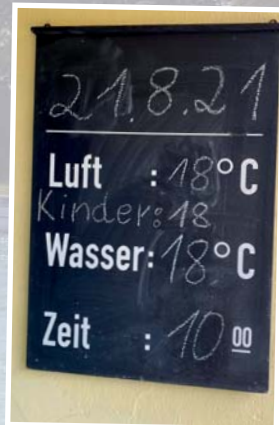 21.8.21
Luft : 18°C
Kinder: 18
Wasser: 18°C
Zeit : 10 00